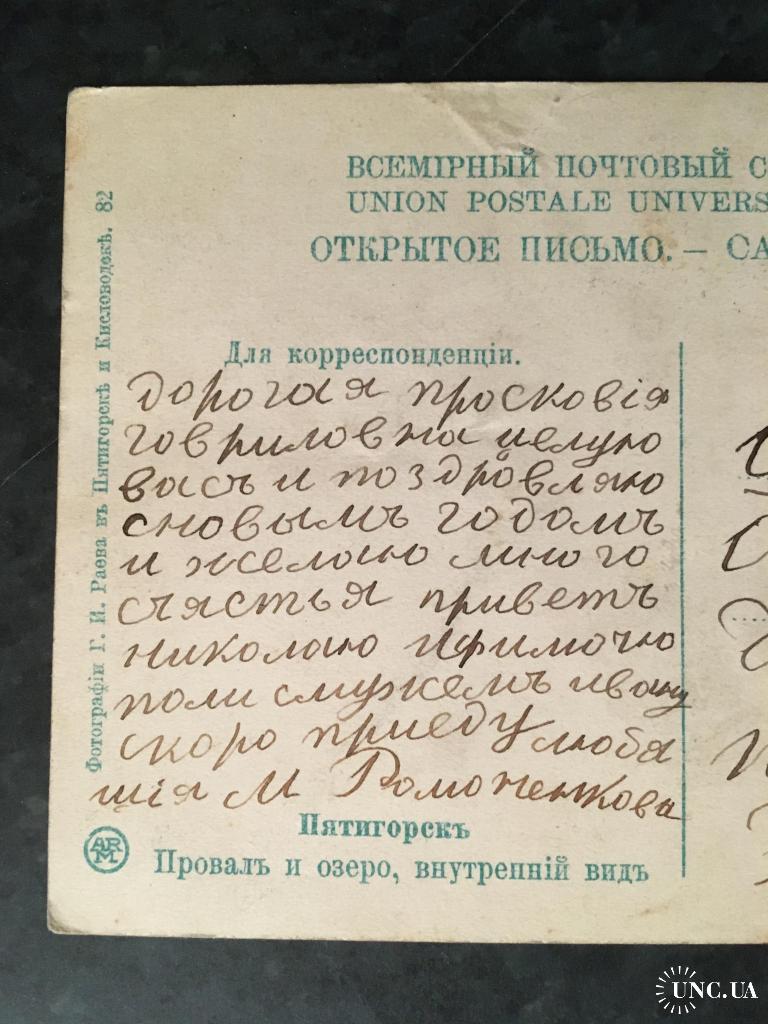 ВСЕМІРНЫЙ ПОЧТОВЫЙ С
UNION POSTALE UNIVERS
ОТКРЫТОЕ ПИСЬМО. — CA
Для корреспонденціи.
дорогая просковія
говриловна целую
васъ и поздровляю
сновымъ годомъ
и желою много
счястья приветъ
николаю ифимочю
поли смужемъ ивону
скоро приеду любя
щія М Ромоненкова
Пятигорскъ
Провалъ и озеро, внутренній видъ
Фотографіи Г. И. Раева въ Пятигорскѣ и Кисловодскѣ. 82
ARM
UNC.UA